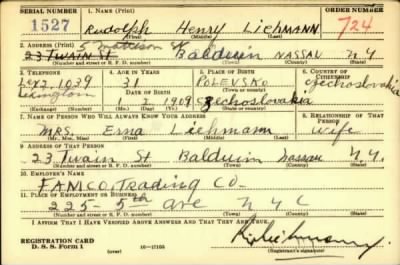 SERIAL NUMBER 1. NAME (Print) ORDER NUMBER
1527 Rudolph Henry Liehmann 724
(First) (Middle) (Last)
2. ADDRESS (Print) 5 
23 TWAIN St Baldwin NASSAU N Y
(Number and street or R. F. D. number) (Town) (County) (State)
3. TELEPHONE 4. AGE IN YEARS 5. PLACE OF BIRTH 6. COUNTRY OF CITIZENSHIP
Lex 2.1039 31 Czechoslovakia
Lexington DATE OF BIRTH (Town or county)
1 1909 Czechoslovakia
(Exchange) (Number) (Mo.) (Day) (Yr.) (State or country)
7. NAME OF PERSON WHO WILL ALWAYS KNOW YOUR ADDRESS 8. RELATIONSHIP OF THAT PERSON
MRS. Erna Liehmann wife
(Mr., Mrs., Miss) (First) (Middle) (Last)
9. ADDRESS OF THAT PERSON
23 Twain St Baldwin Nassau N.Y.
(Number and street or R. F. D. number) (Town) (County) (State)
10. EMPLOYER'S NAME
FAMCO Trading Co
11. PLACE OF EMPLOYMENT OR BUSINESS
225 5th ave N Y C
(Number and street or R. F. D. number) (Town) (County) (State)
I AFFIRM THAT I HAVE VERIFIED ABOVE ANSWERS AND THAT THEY ARE TRUE.
REGISTRATION CARD
D. S. S. Form 1 (over) 16-17105